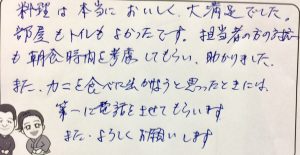 料理は本当においしく、大満足でした。
部屋もトイレもよかったです。担当者の方の対応
も朝食時間を考慮してもらい、助かりました。
また、カニを食べに出かけようと思ったときには、
第一に電話をさせてもらいます
また、よろしくお願いします